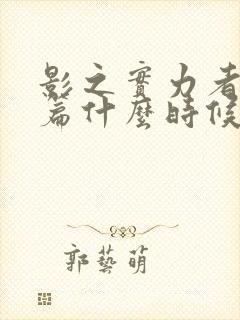 影之實力者
篇什麼時候
郭藝萌